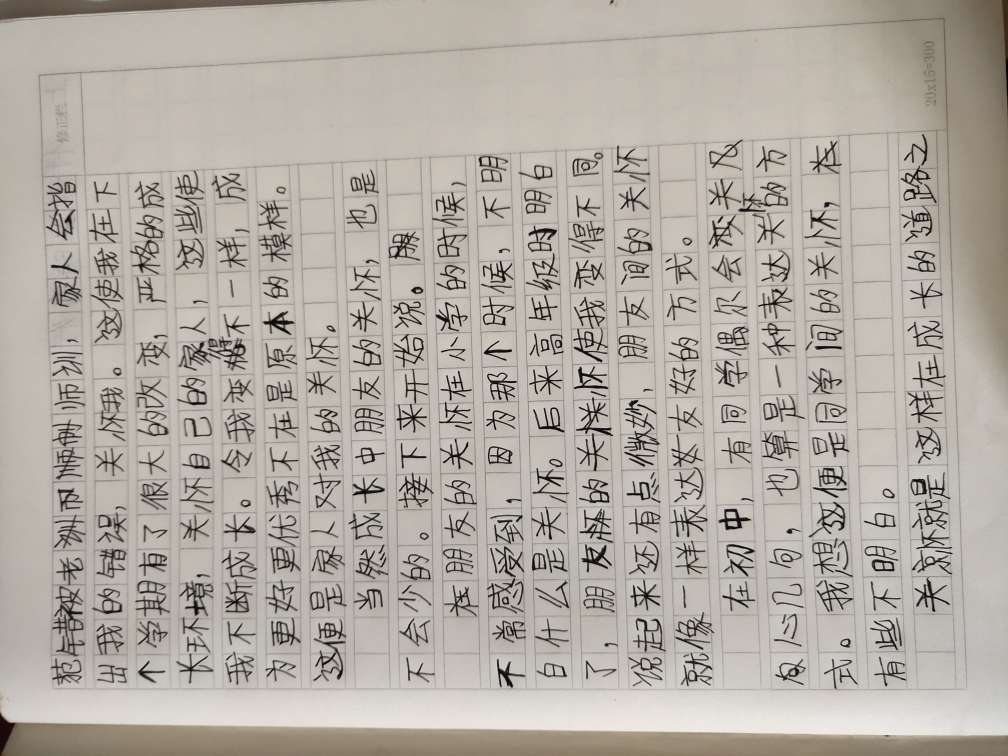 修正栏
范年被老师训,家人会指
出我的错误,关怀我。这使我在下
个学期有了很大的改变,严格的成
长环境,关怀自己的家人,这些使
我不断成长。令我变得不一样,成
为更好更优秀不在是原本的模样。
这便是家人对我的关怀。
当然成长中朋友的关怀,也是
不会少的。接下来开始说。
在朋友的关怀在小学的时候,
不常感受到,因为那个时候,不明
白什么是关怀。后来高年级时明白
了,朋友的关怀使我变得不同。
说起来还有点微妙,朋友间的关怀
就像一样表达友好的方式。
在初中,有同学偶尔会关
心几句,也算是一种表达关怀的方
式。我想这便是同学间的关怀,在
有些不明白。
关怀就是这样在成长的道路之
20x15=300